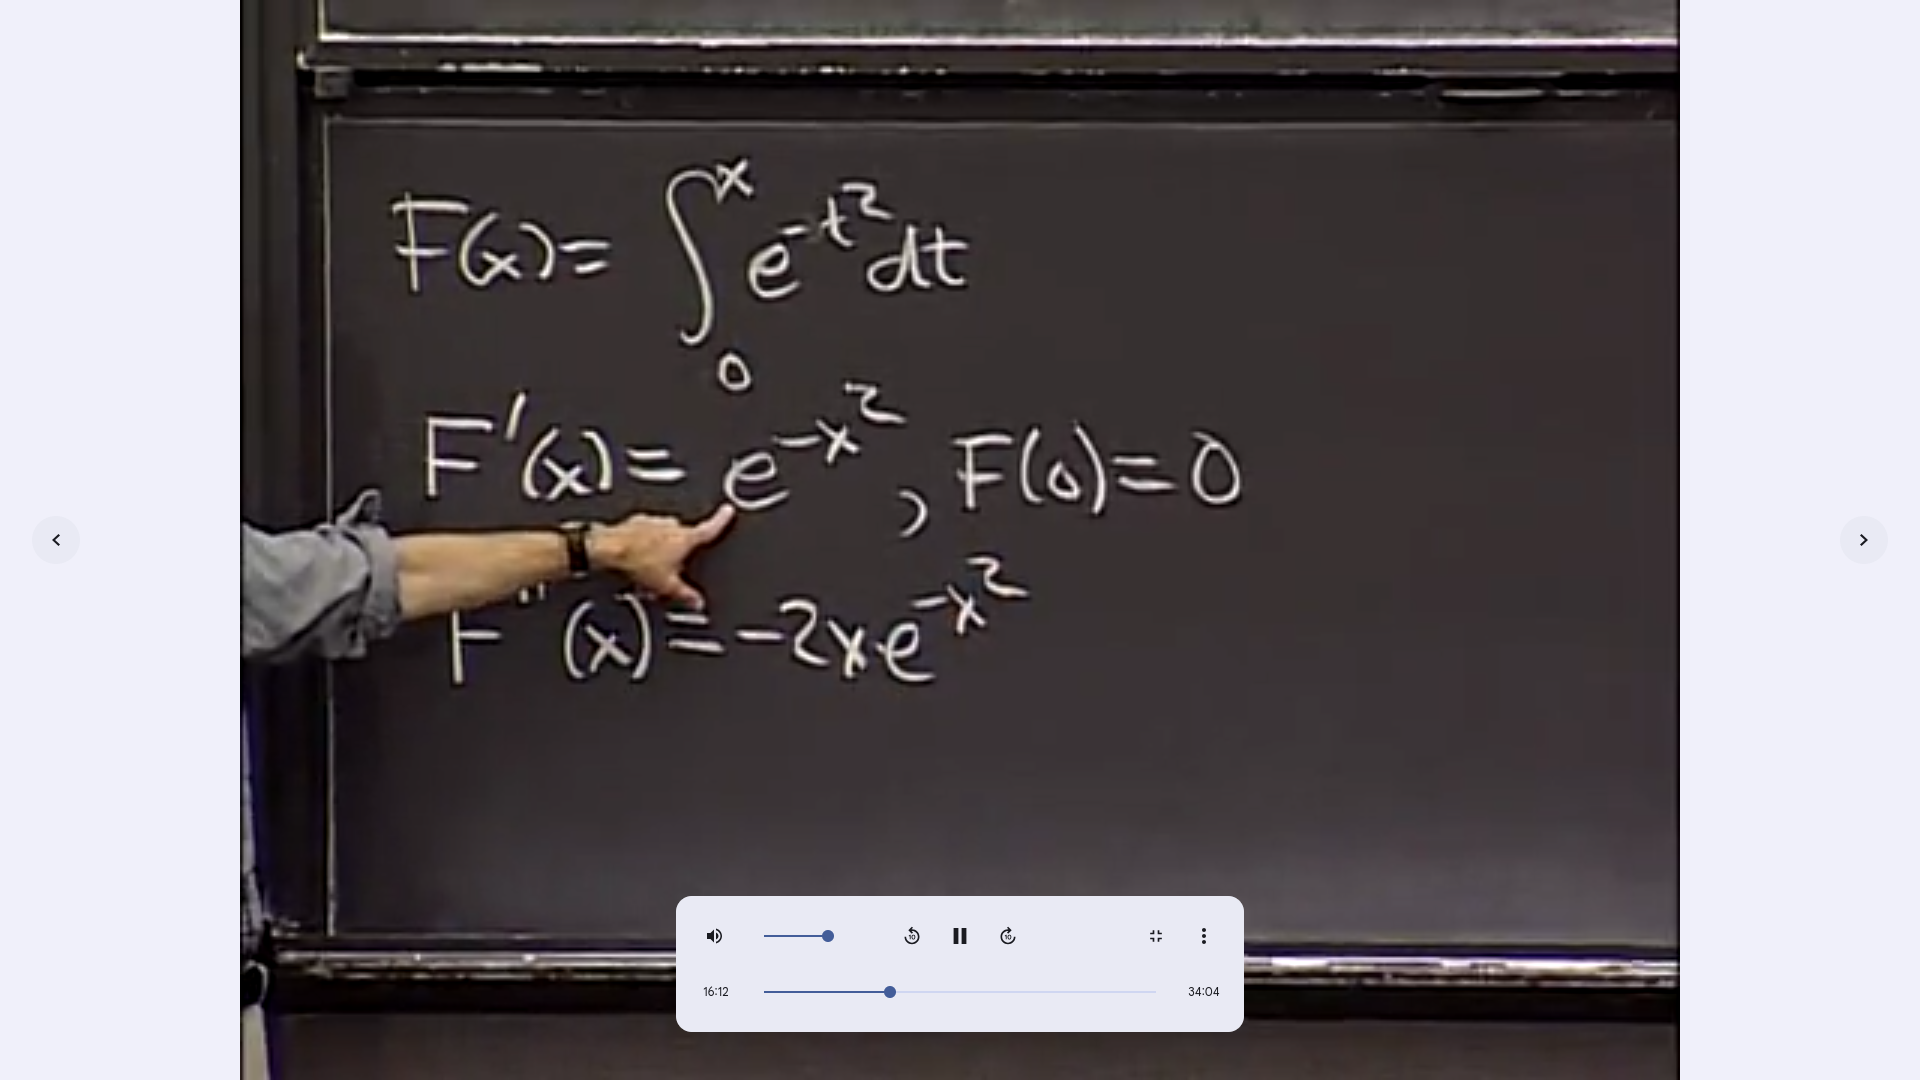 F(x) = ∫₀ˣ e^{-t²} dt
F'(x) = e^{-x²}, F(0) = 0
F''(x) = -2xe^{-x²}
10
10
16:12
34:04